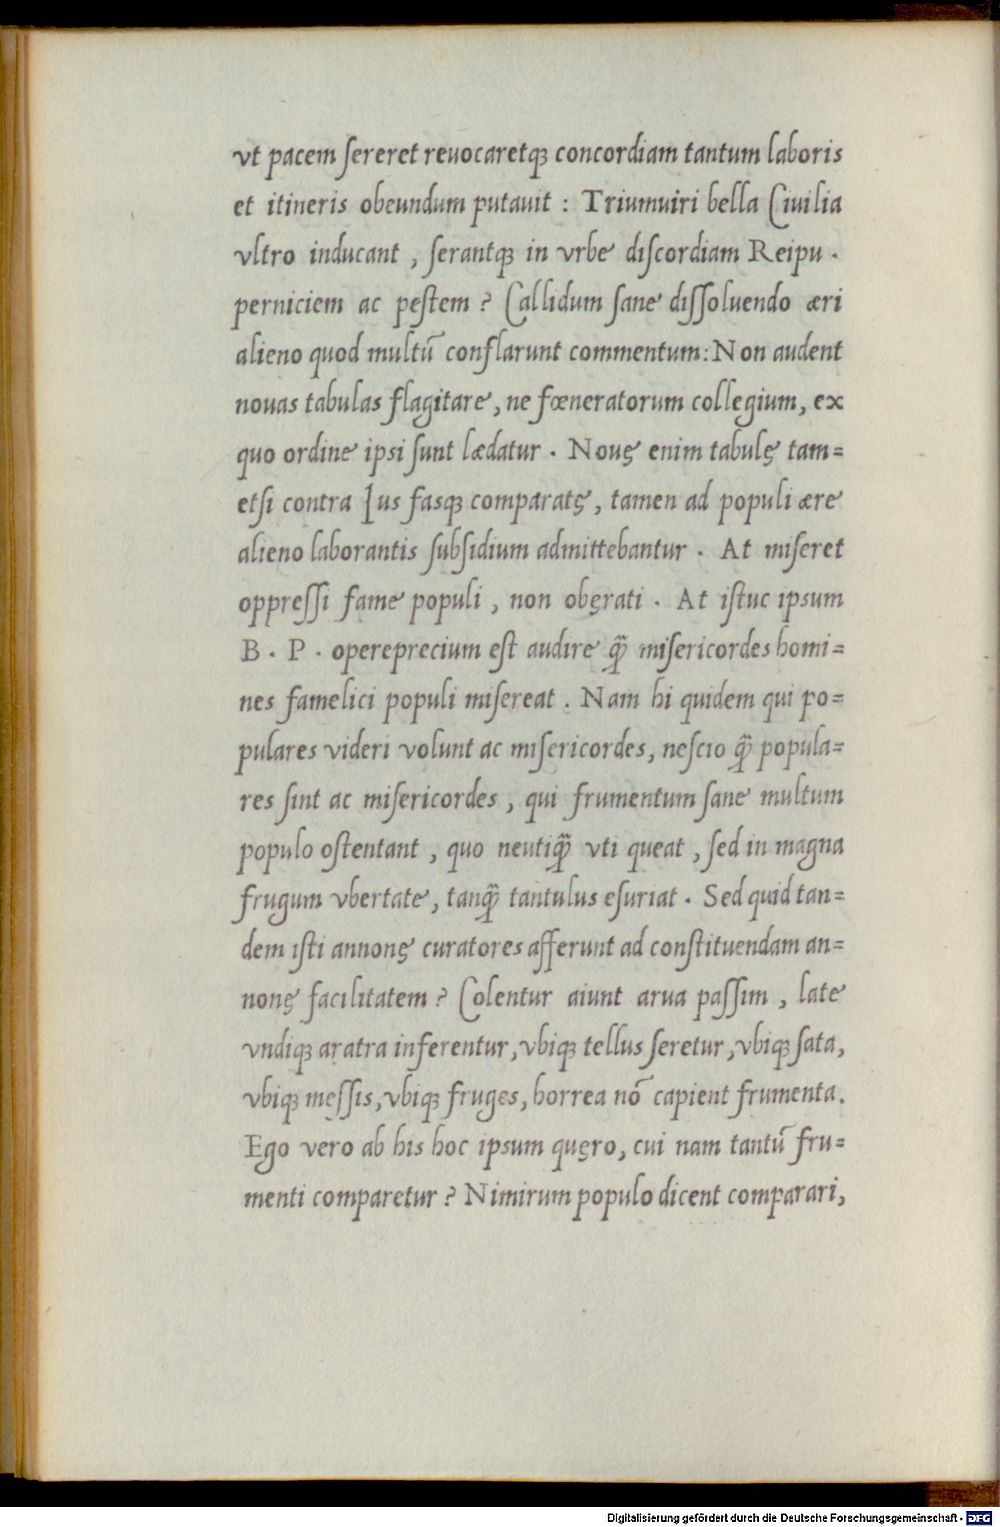 vt pacem ſereret reuocaretqꝫ concordiam tantum laboris
et itineris obeundum putauit : Triumuiri bella Ciuilia
vltro inducant , ſerantqꝫ in vrbe diſcordiam Reipu .
perniciem ac peſtem ? Callidum ſane diſſoluendo æri
alieno quod multũ conflarunt commentum: Non audent
nouas tabulas flagitare, ne fœneratorum collegium, ex
quo ordine ipsi ſunt lædatur . Nouę enim tabulę tam=
etſi contra Ius fasqꝫ comparatę, tamen ad populi ære
alieno laborantis ſubſidium admittebantur . At miſeret
oppreſſi fame populi , non obęrati . At iſtuc ipsum
B . P . opereprecium eſt audire q̃ꝫ miſericordes homi=
nes famelici populi miſereat . Nam hi quidem qui po=
pulares videri volunt ac miſericordes, neſcio q̃ꝫ popula=
res ſint ac miſericordes , qui frumentum ſane multum
populo oſtentant , quo neutiq̃ꝫ vti queat , ſed in magna
frugum vbertate, tanq̃ꝫ tantulus eſuriat . Sed quid tan=
dem iſti annonę curatores afferunt ad conſtituendam an=
nonę facilitatem ? Colentur aiunt arua paſſim , late
vndiqꝫ aratra inferentur, vbiqꝫ tellus ſeretur, vbiqꝫ ſata,
vbiqꝫ męſſis, vbiqꝫ fruges, horrea nõ capient frumenta.
Ego vero ab his hoc ipsum quęro, cui nam tantũ fru=
menti comparetur ? Nimirum populo dicent comparari,
Digitalisierung gefördert durch die Deutsche Forschungsgemeinschaft - DFG